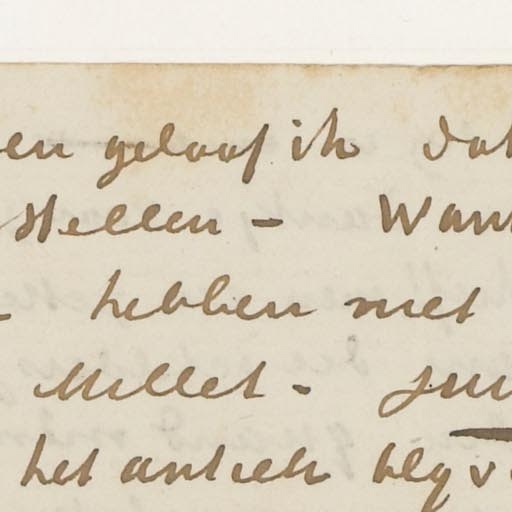 en geloof ik dat
stellen - Want
hebben met
Millet -
het antiek blyv